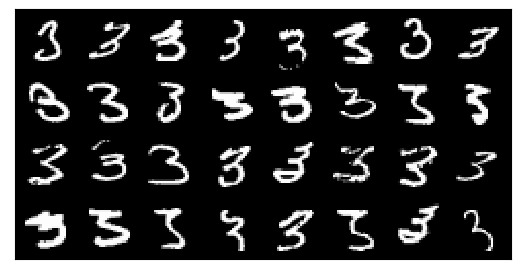 3 3 3 3 3 3 3 3
3 3 3 3 3 3 3 3
3 3 3 3 3 3 3 3
3 3 3 3 3 3 3 3